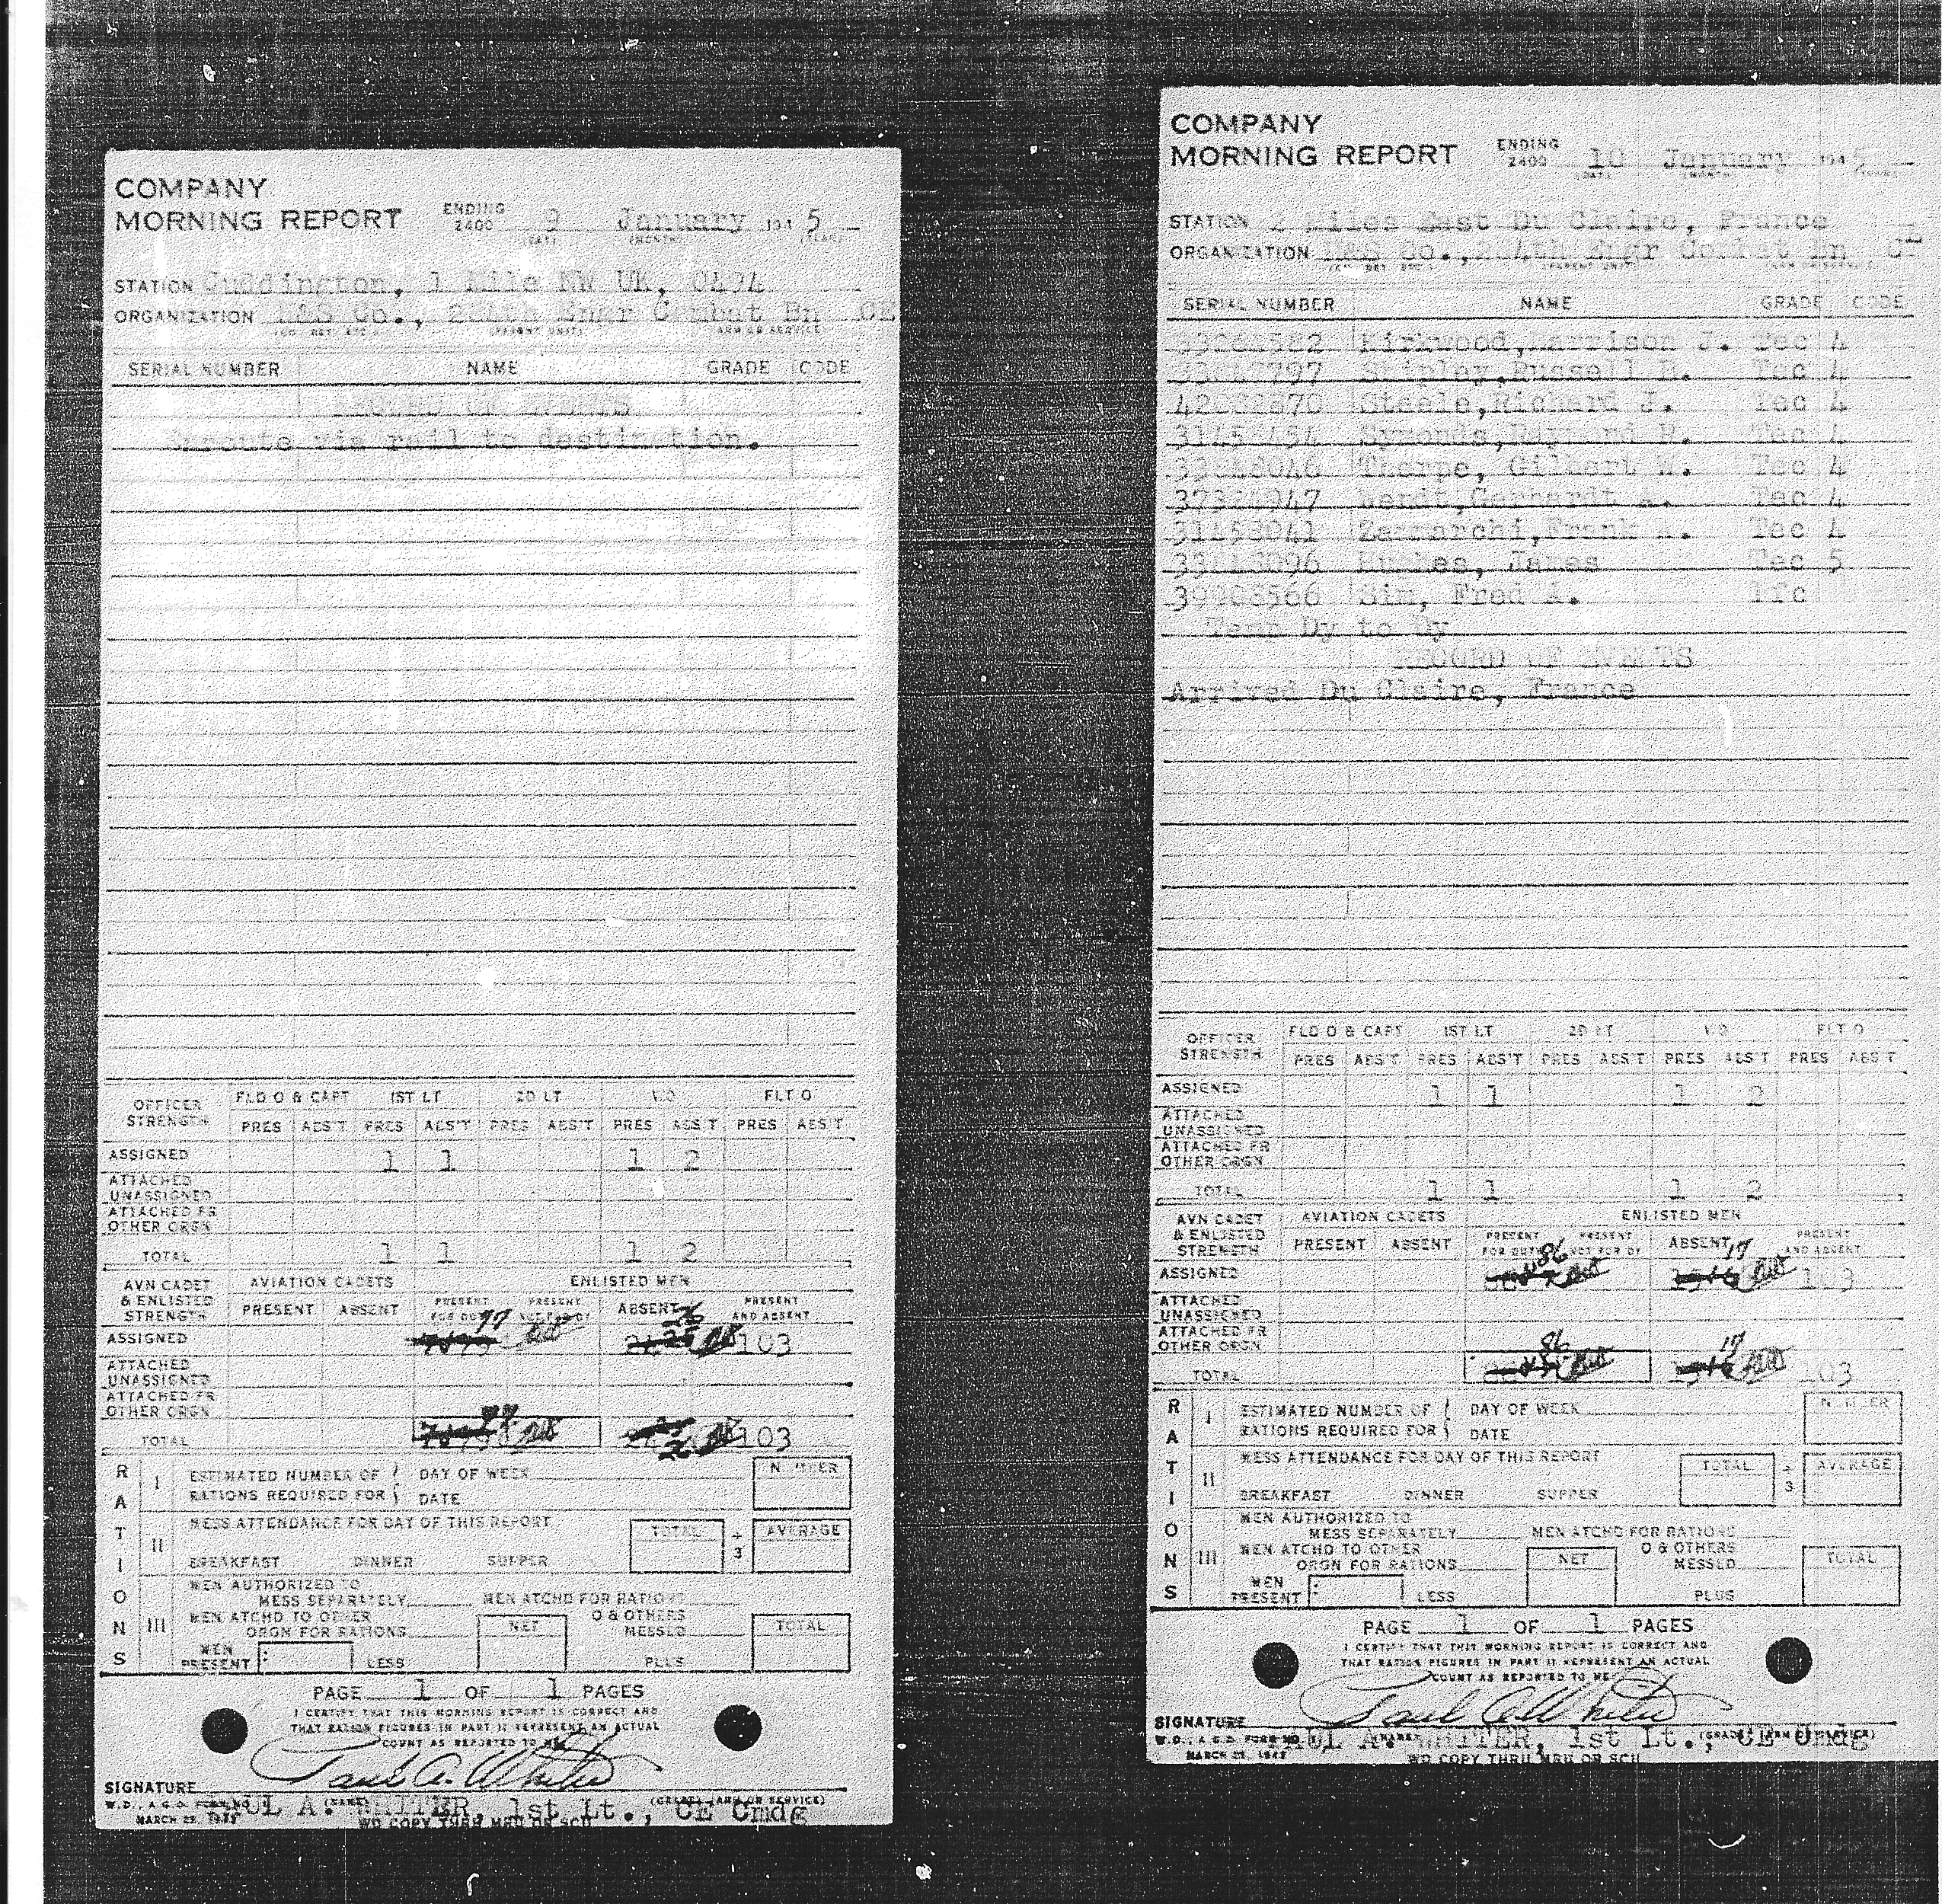 COMPANY
MORNING REPORT ENDING 2400 9 January 1945
(DAY) (MONTH) (YEAR)
STATION Cuddington, 1 Mile NW UK, 0494
ORGANIZATION H&S Co., 284th Engr Combat Bn CE
(PARENT UNIT) (ARM OR SERVICE)
SERIAL NUMBER NAME GRADE CODE
RECORD OF EVENTS
Enroute via rail to destination.
OFFICER STRENGTH FLD O & CAPT 1ST LT 2D LT WO FLT O
PRES ABS'T PRES ABS'T PRES ABS'T PRES ABS'T PRES ABS'T
ASSIGNED 1 1 1 2
ATTACHED UNASSIGNED
ATTACHED FR OTHER ORGN
TOTAL 1 1 1 2
AVN CADET & ENLISTED STRENGTH AVIATION CADETS ENLISTED MEN
PRESENT ABSENT PRESENT FOR DUTY PRESENT NOT FOR DY ABSENT PRESENT AND ABSENT
ASSIGNED 77 26 103
ATTACHED UNASSIGNED
ATTACHED FR OTHER ORGN
TOTAL 77 26 103
RATIONS
I ESTIMATED NUMBER OF RATIONS REQUIRED FOR DAY OF WEEK DATE NUMBER
II MESS ATTENDANCE FOR DAY OF THIS REPORT TOTAL ÷ 3 AVERAGE
BREAKFAST DINNER SUPPER
III MEN AUTHORIZED TO MESS SEPARATELY MEN ATCHD FOR RATIONS
MEN ATCHD TO OTHER ORGN FOR RATIONS NET O & OTHERS MESSED TOTAL
MEN PRESENT : LESS PLUS
PAGE 1 OF 1 PAGES
I CERTIFY THAT THIS MORNING REPORT IS CORRECT AND
THAT RATION FIGURES IN PART II REPRESENT AN ACTUAL
COUNT AS REPORTED TO ME
SIGNATURE Paul A. Whiter
PAUL A. WHITER, 1st Lt., CE Cmdg
(NAME) (GRADE) (ARM OR SERVICE)
W.D., A.G.O. FORM NO. 1
MARCH 29, 1943
WD COPY THRU MRU OR SCU
COMPANY
MORNING REPORT ENDING 2400 10 January 1945
STATION 2 Miles East Du Claire, France
ORGANIZATION H&S Co., 284th Engr Combat Bn CE
SERIAL NUMBER NAME GRADE CODE
Kirkwood, Harrison J. Tec 4
Shipley, Russell H. Tec 4
Steele, Richard J. Tec 4
Symonds, Raymond H. Tec 4
Thorpe, Gilbert W. Tec 4
Wendt, Gerhardt A. Tec 4
31453041 Zammarchi, Frank A. Tec 4
Hughes, James Tec 5
39908566 Sim, Fred A. Pfc
Temp Dy to Dy
RECORD OF EVENTS
Arrived Du Claire, France
OFFICER STRENGTH FLD O & CAPT 1ST LT 2D LT WO FLT O
PRES ABS'T PRES ABS'T PRES ABS'T PRES ABS'T PRES ABS'T
ASSIGNED 1 1 1 2
ATTACHED UNASSIGNED
ATTACHED FR OTHER ORGN
TOTAL 1 1 1 2
AVN CADET & ENLISTED STRENGTH AVIATION CADETS ENLISTED MEN
PRESENT ABSENT PRESENT FOR DUTY PRESENT NOT FOR DY ABSENT PRESENT AND ABSENT
ASSIGNED 86 17 103
ATTACHED UNASSIGNED
ATTACHED FR OTHER ORGN
TOTAL 86 17 103
RATIONS
I ESTIMATED NUMBER OF RATIONS REQUIRED FOR DAY OF WEEK DATE NUMBER
II MESS ATTENDANCE FOR DAY OF THIS REPORT TOTAL ÷ 3 AVERAGE
BREAKFAST DINNER SUPPER
III MEN AUTHORIZED TO MESS SEPARATELY MEN ATCHD FOR RATIONS
MEN ATCHD TO OTHER ORGN FOR RATIONS NET O & OTHERS MESSED TOTAL
MEN PRESENT : LESS PLUS
PAGE 1 OF 1 PAGES
I CERTIFY THAT THIS MORNING REPORT IS CORRECT AND
THAT RATION FIGURES IN PART II REPRESENT AN ACTUAL
COUNT AS REPORTED TO ME
SIGNATURE Paul A. Whiter
PAUL A. WHITER, 1st Lt., CE Cmdg
(NAME) (GRADE) (ARM OR SERVICE)
W.D., A.G.O. FORM NO. 1
MARCH 29, 1943
WD COPY THRU MRU OR SCU